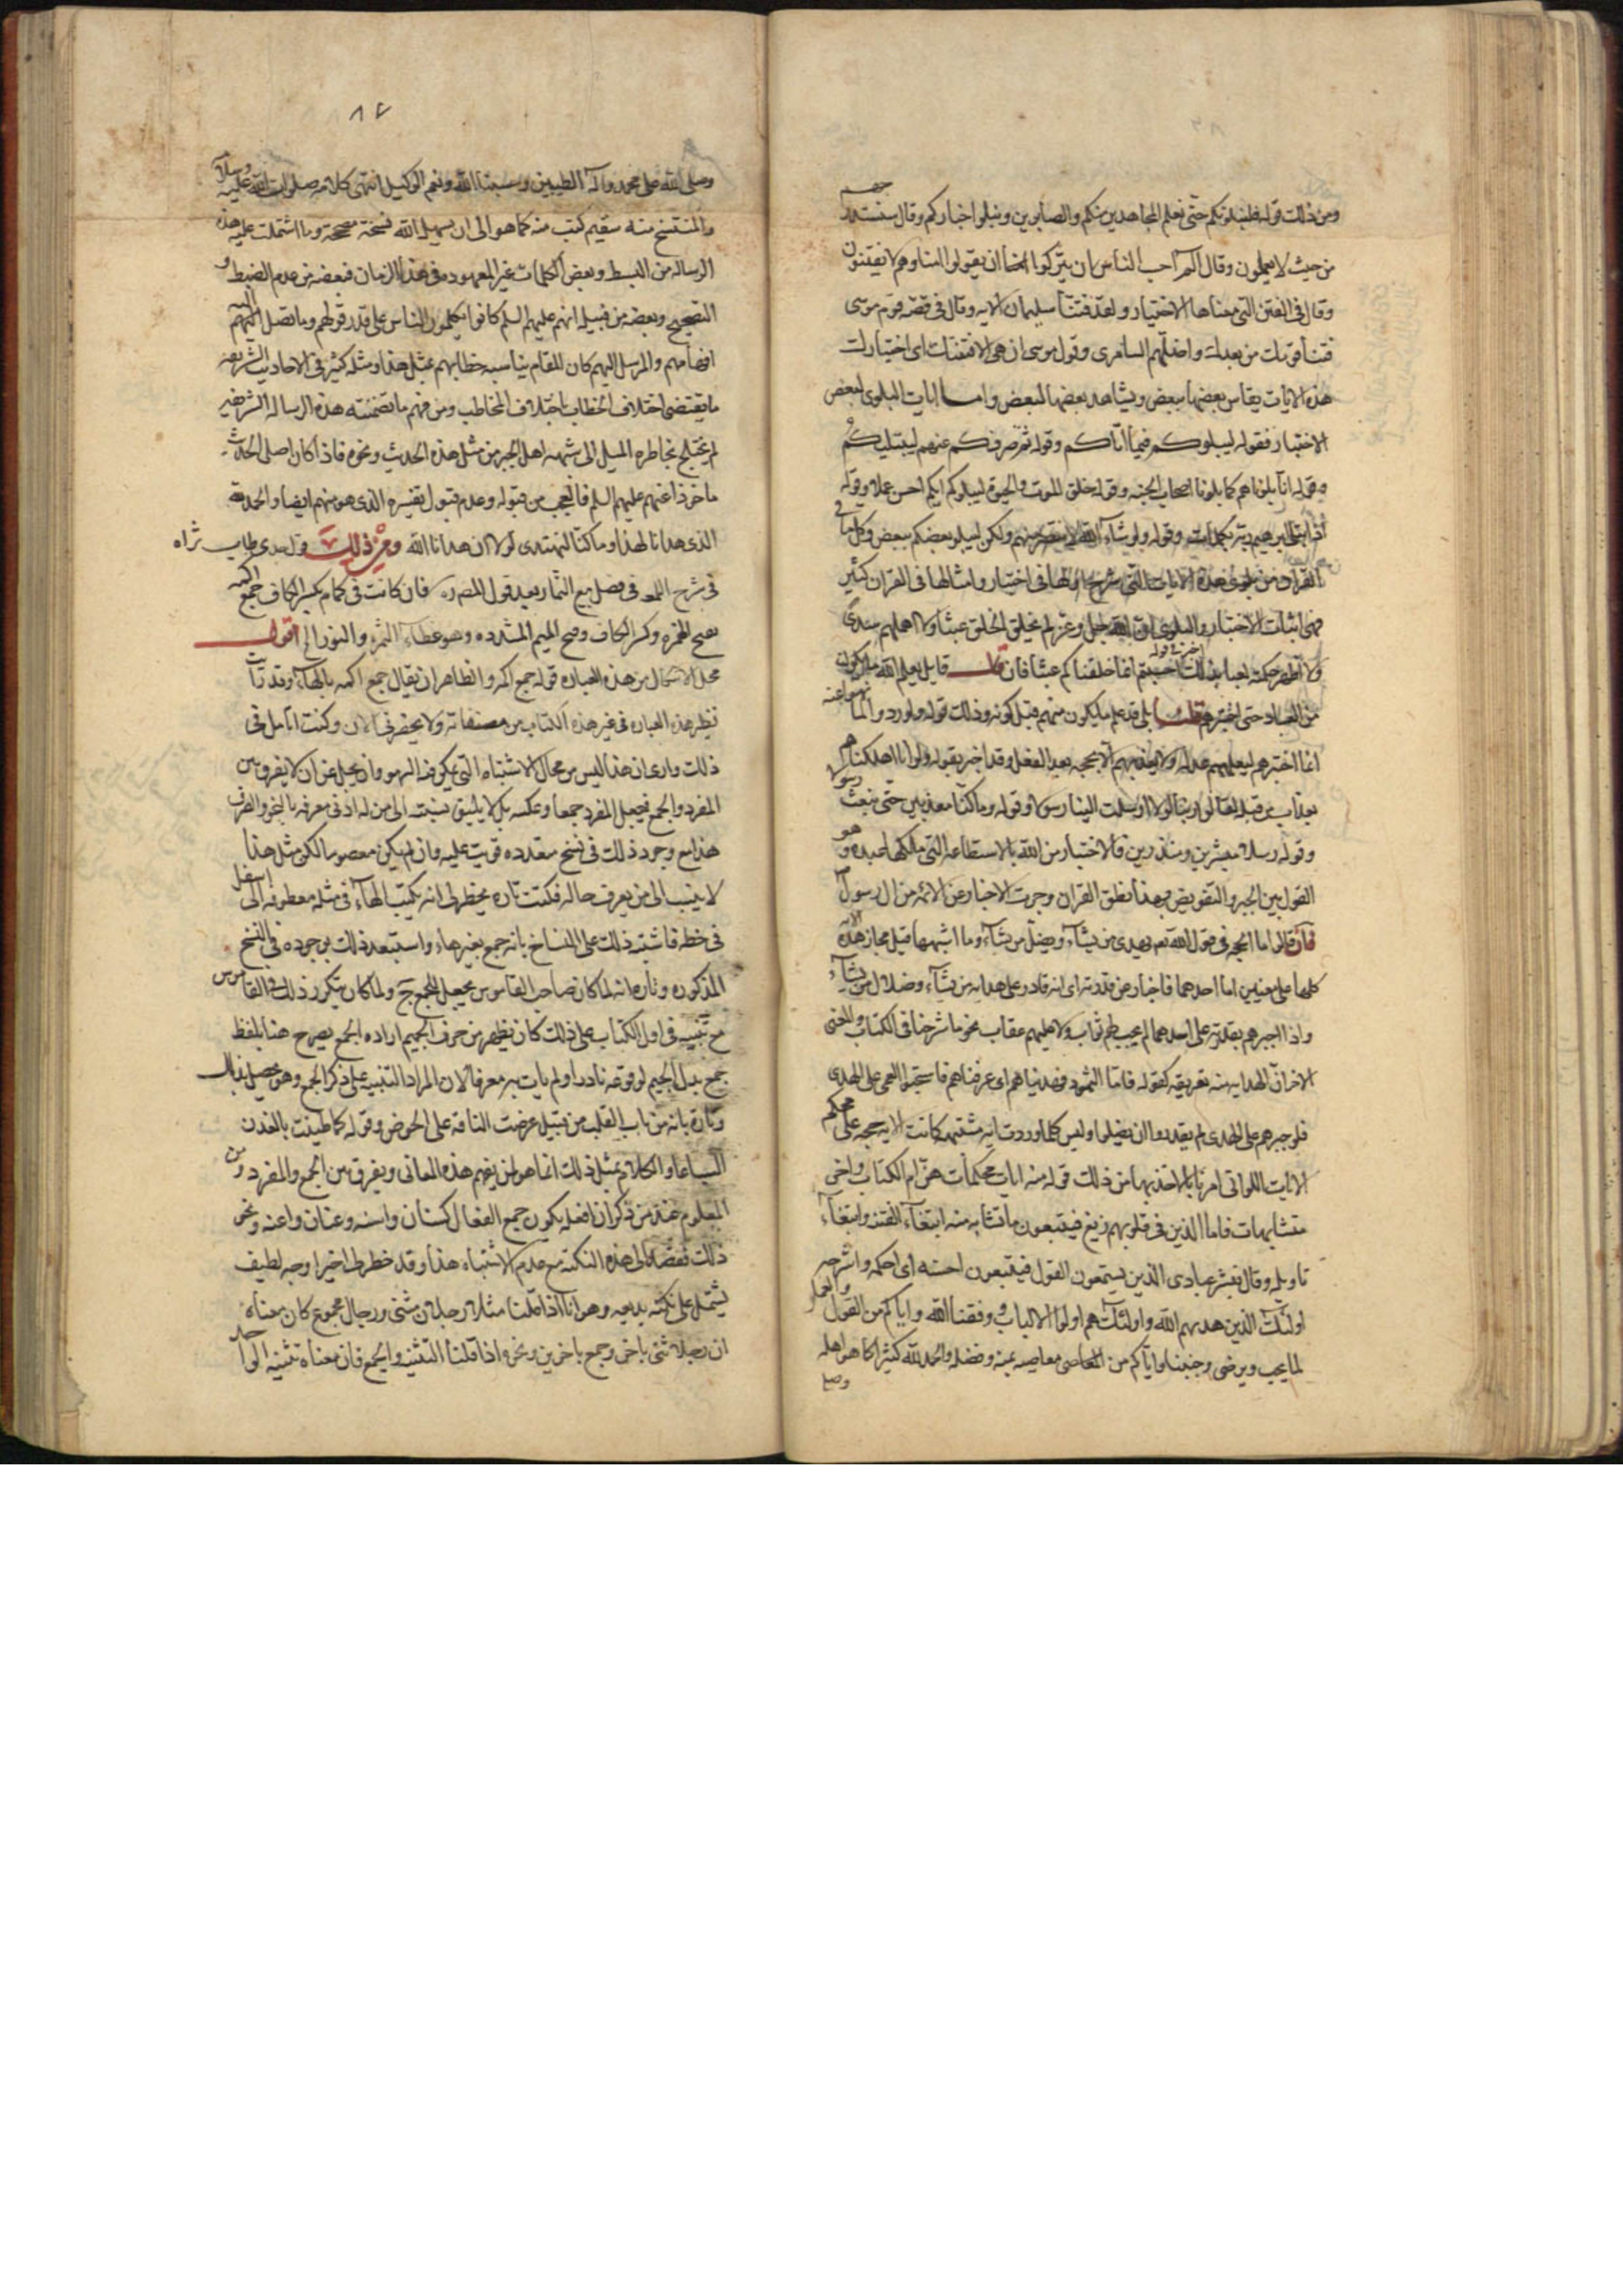 ومن ذلك قوله ولنبلونكم حتى نعلم المجاهدين منكم والصابرين ونبلوا اخباركم وقال سنستدرجهم
من حيث لا يعلمون وقال الم احسب الناس ان يتركوا ان يقولوا امنا وهم لا يفتنون
وقال في الفتن التي معناها الاختيار ولقد فتنا سليمان الايه وقال في قصه قوم موسى
فتنا قومك من بعدك واضلهم السامرى وقول موسى ان هى الا فتنتك اى اختبارك
هذه الايات يقاس بعضها ببعض ويشاهد بعضها لبعض واما ايات البلوى لبعض
الاختبار فقوله ليبلوكم فيما اتاكم وقوله ثم صرفكم عنهم ليبتليكم
وقوله انا بلوناهم كما بلونا اصحاب الجنه وقوله خلق الموت والحيوة ليبلوكم ايكم احسن عملا وقوله
اذ ابتلى ابرهيم ربه بكلمات وقوله ولو يشاء الله لانتصر منهم ولكن ليبلو بعضكم ببعض وكل ما في
القران من بلوى هذه الايات التي شرح اولها فى اختبار وامثالها فى القران كثير
فهى اثبات الاختبار والبلوى ان الله جل وعز لم يخلق الخلق عبثا ولا اهملهم سدى
ولا اظهر حكمته لعبا بذلك اخبر في قوله افحسبتم انما خلقناكم عبثا فان قال قايل يعلم الله ما يكون
من العباد حتى اختبرهم قلنا بلى قد علم ما يكون منهم قبل كونه وذلك قوله ولو ردوا لعادوا لما نهوا عنه
انما اختبرهم ليعلمهم عدله ولا يعذبهم الا بحجه بعد الفعل وقد اخبر بقوله ولو انا اهلكناهم
بعذاب من قبله لقالوا ربنا لولا ارسلت الينا رسولا وقوله وما كنا معذبين حتى نبعث رسولا
وقوله رسلا مبشرين ومنذرين فالاختبار من الله بالاستطاعه التي ملكها عبده وهو
القول بين الجبر والتفويض وبهذا نطق القران وجرت الاخبار عن الائمه من ال رسول
فان قالوا ما الحجه في قول الله تعالى يهدى من يشاء ويضل من يشاء وما اشبهها قيل مجاز هذه الايه
كلها على معنيين اما احدهما فاخبار عن قدرته اى انه قادر على هدايه من يشاء وضلال من يشاء
واذا اجبرهم بقدرته على احدهما لم يجب لهم ثواب ولا عليهم عقاب نحو ما شرحنا فى الكتاب والمعنى
الاخر ان الهدايه منه تعريفه كقوله فاما الثمود فهديناهم اى عرفناهم فاستحبوا العمى على الهدى
فلو جبرهم على الهدى لم يقدروا ان يضلوا وليس كلما وردت ايه مشتبهه كانت الايه حجه على محكم
الايات اللواتى امرنا بالاخذ بها من ذلك قوله منه ايات محكمات هن ام الكتاب واخر
متشابهات فاما الذين فى قلوبهم زيغ فيتبعون ما تشابه منه ابتغاء الفتنه وابتغاء
تاويله وقال فبشر عبادى الذين يستمعون القول فيتبعون احسنه اى احكمه واشرحه
اولئك الذين هديهم الله واولئك هم اولوا الالباب وفقنا الله واياكم من القول والعمل
لما يحب ويرضى وجنبنا واياكم من المعاصى معاصيه بمنه وفضله والحمد لله كثيرا كما هو اهله
وصلى
٨٤
وصلى الله على محمد واله الطيبين وحسبنا الله ونعم الوكيل انتهى كلامه صلوات الله عليه وسلامه
والمنتسخ منه سقيم كتب منه كما هو الى ان يسهل الله نسخة مصححة وما اشتملت عليه هذه
الرساله من البسط وبعض الكلمات غير المعهوده فى هذا الزمان فبعضه من عدم الضبط و
التصحيح وبعضه من قبيل انهم عليهم السلم كانوا يكلمون الناس على قدر عقولهم وما تصل اليه
افهامهم والمرسل اليهم كان المقام يناسبه خطابهم بمثل هذا ومثله كثير فى الاحاديث الشريفه
ما يقتضى اختلاف الخطاب باختلاف المخاطب ومن فهم ما تضمنته هذه الرساله الشريفه
لم يختلج بخاطره الميل الى شبهه اهل الجبر من مثل هذه الحديث ونحوه فاذا كان اصل الحديث
ماخوذا عنهم عليهم السلم فالعجب من قبوله وعدم قبول تفسيره الذى هو منهم ايضا والحمد لله
الذى هدانا لهذا وما كنا لنهتدى لولا ان هدانا الله ومن ذلك قول جدى طاب ثراه
فى شرح اللمعه فى فصل بيع الثمار بعد قول المص ره فان كانت فى كمام بكسر الكاف جمع اكمه
بفتح الهمزه وكسر الكاف وفتح الميم المشدده وهو غطاء الثمره والنور الخ اقول
محل الاشكال من هذه العباره قوله جمع اكمه والظاهر ان يقال جمع اكمه بالهاء وقد رأيت
نظير هذه العباره فى غير هذه الكتاب من مصنفاته ولا يحضرنى الان وكنت اتامل فى
ذلك وارى ان هذا ليس من محال الاشتباه التي يمكن فيها السهو وانه يجل عن ان لا يفرق بين
المفرد والجمع فيجعل المفرد جمعا وعكسه بل لا يليق نسبته الى من له ادنى معرفه بالنحو والصرف
هذا مع وجود ذلك فى نسخ متعدده قريت عليه وان لم يكن معصوما لكن مثل هذا
لا ينسب الى من يعرف حاله فكنت تاره يخطر لى انه يكتب الهاء فى مثله معطوفه الى اسفل
فى خطه فاشتبه ذلك على النساخ بانه جمع بغير هاء واستبعد ذلك بوجوده فى النسخ
المذكوره وتاره انه لما كان صاحب القاموس يجعل للجمع ج ولما كان يتكرر ذلك فى القاموس
مع تنبيهه فى اول الكتاب على ذلك كان يظهر من حرف الجيم اراده الجمع يصرح هنا بلفظ
جمع بدل الجيم لوقوعه نادرا ولم يات به معرفا لان المراد التنبيه على ذكر الجمع وهو يحصل بذلك
وتارة بانه من باب القلب من قبيل عرضت الناقه على الحوض وقوله كما طينت بالفدن
السياعا والكلام بمثل ذلك انما هو لمن يفهم هذه المعانى ويفرق بين الجمع والمفرد ومن
المعلوم عند من ذكر ان افعله يكون جمع الفعال كسنان واسنه وعنان واعنه ونحو
ذلك فقصد الى هذه النكته مع عدم الاشتباه هذا وقد خطر لى اخيرا وجه لطيف
يشتمل على نكته بديعه وهو انا اذا قلنا مثلا رجلان مثنى ورجال مجموع كان معناه
ان رجلا ثنى باخر وجمع باخرين ونحوه اذا قلنا التثنيه والجمع فان معناه تثنيه الواحد